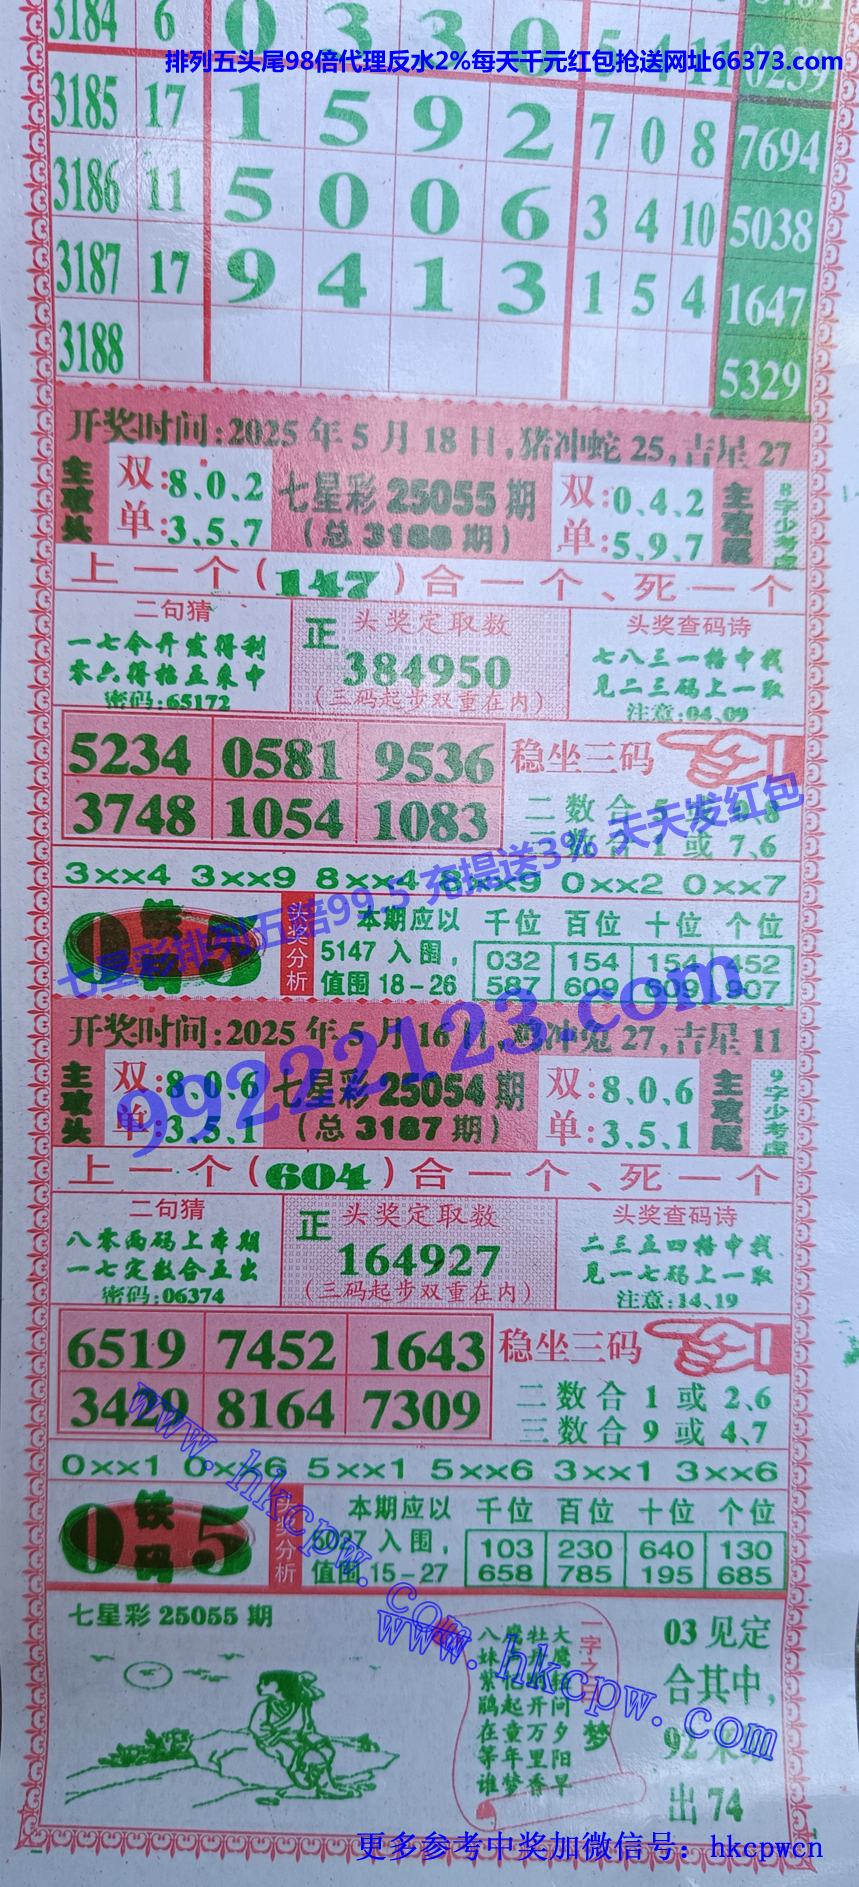 3184 6 0 3 3 0 5 4 11 0239
排列五头尾98倍代理反水2%每天千元红包抢送网址66373.com
3185 17 1 5 9 2 7 0 8 7694
3186 11 5 0 0 6 3 4 10 5038
3187 17 9 4 1 3 1 5 4 1647
3188 5329
开奖时间:2025年5月18日,猪冲蛇25,吉星27
主攻头
双:8、0、2
单:3、5、7
七星彩25055期
(总3188期)
双:0、4、2
单:5、9、7
主攻尾
8字少考虑
上一个(147)合一个、死一个
二句猜
一七合开发得利
零六得格五来中
密码:65172
正
头奖定取数
384950
(三码起步双重在内)
头奖查码诗
七八三一格中找
见二三码上一取
注意:04、09
5234 0581 9536
3748 1054 1083
稳坐三码
二数合5或0、8
三数合1或7、6
3xx4 3xx9 8xx4 8xx9 0xx2 0xx7
七星彩排列五倍99.5 充提送3% 天天发红包
0铁码5
头奖分析
本期应以
5147入围,
值围18-26
千位 百位 十位 个位
032 154 154 452
587 609 609 907
99222123.com
开奖时间:2025年5月16日,鸡冲兔27,吉星11
主攻头
双:8、0、6
单:3、5、1
七星彩25054期
(总3187期)
双:8、0、6
单:3、5、1
主攻尾
9字少考虑
上一个(604)合一个、死一个
二句猜
八零两码上本期
一七定数合五出
密码:06374
正
头奖定取数
164927
(三码起步双重在内)
头奖查码诗
二三五四格中找
见一七码上一取
注意:14、19
6519 7452 1643
3429 8164 7309
稳坐三码
二数合1或2、6
三数合9或4、7
0xx1 0xx6 5xx1 5xx6 3xx1 3xx6
www.hkcpw.com
0铁码5
头奖分析
本期应以
6027入围,
值围15-27
千位 百位 十位 个位
103 230 640 130
658 785 195 685
七星彩25055期
一字之曰
梦
牡
开万里香
问夕阳早
起童年梦
八妹紫鹃在等谁
www.hkcpw.com
03见定
合其中,
92来
出74
更多参考中奖加微信号：hkcpwcn